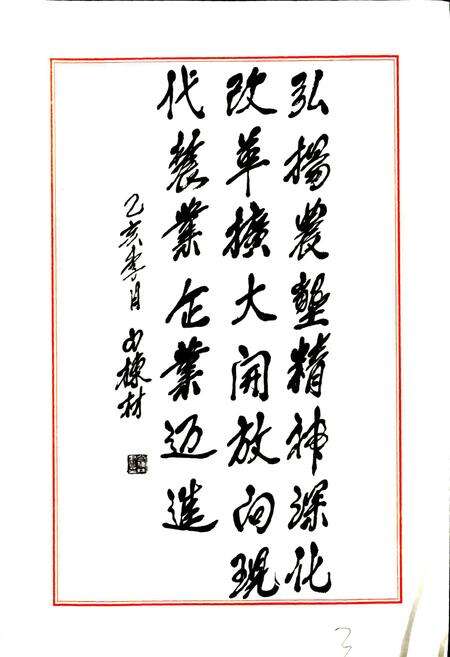 弘揚農墾精神深化
改革擴大開放向現
代農業企業迈進
乙亥季月 白棟材
3